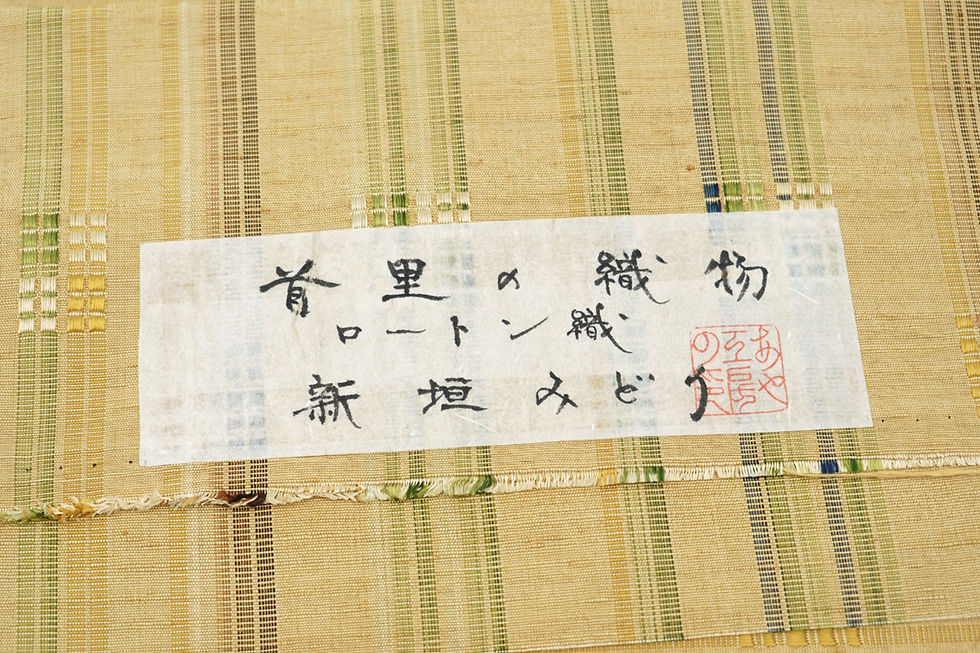 首里の織物
ロートン織
新垣みどり
あや
の